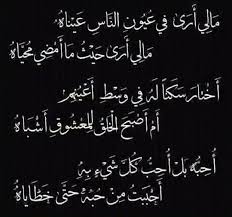 مَا لِي أَرَى فِي عُيُونِ النَّاسِ عَيْنَاهُ
مَالِي أَرَى حَيْثُ مَا أَمْضِي مُحَيَّاهُ
أَخْتَارَ سَكَنًا لَهُ فِي وَسْطِ أَعْيُنِهِمِ
أَمْ أَصْبَحَ الْخَلْقُ لِلْمَعْشُوقِ أَشْبَاهُ
أُحِبُّهُ بَلْ أُحِبُّ كُلَّ شَيْءٍ بِهِ
أَحْبَبْتُ مِنْ حُبِّهِ حَتَّى خَطَايَاهُ